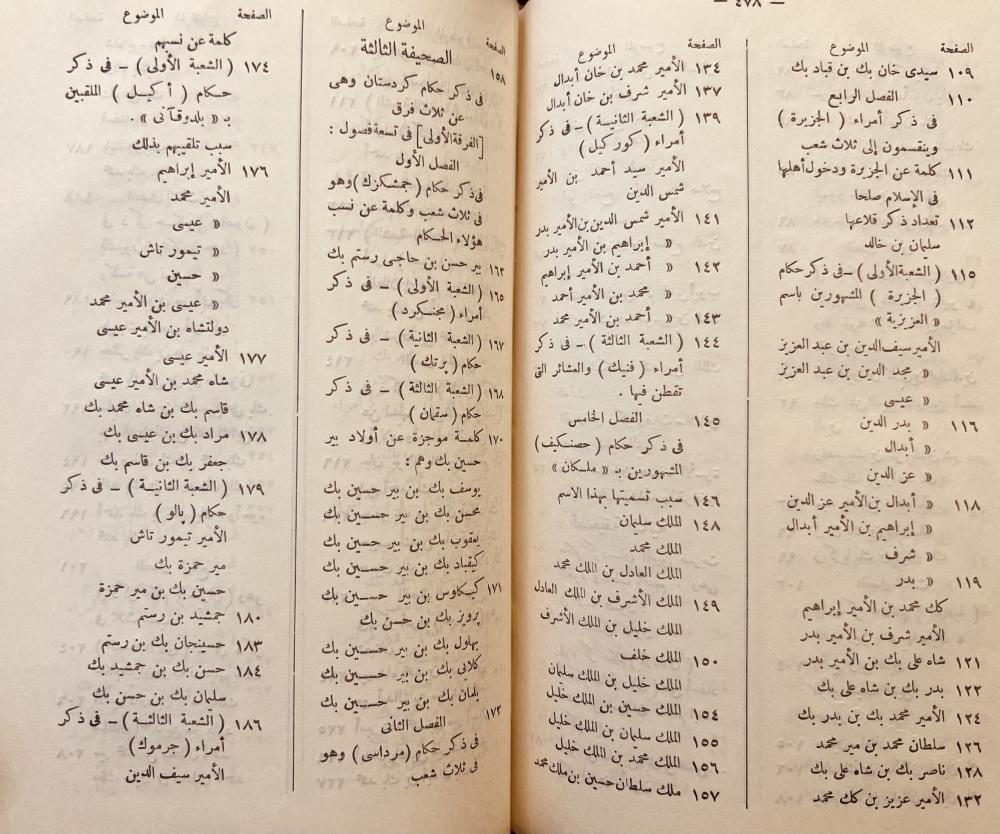 — ٤٧٨ —
الصفحة الموضوع
١٠٩ سيدى خان بك بن قباد بك
١١٠ الفصل الرابع
فى ذكر أمراء ( الجزيرة )
وينقسمون إلى ثلاث شعب
١١١ كلمة عن الجزيرة ودخول أهلها
فى الإسلام صلحا
١١٢ تعداد ذكر قلاعها
سليمان بن خالد
١١٥ ( الشعبة الأولى ) – فى ذكر حكام
( الجزيرة ) المشهورين باسم
« العزيزية »
الأمير سيف الدين بن عبد العزيز
« مجد الدين بن عبد العزيز
« عيسى
١١٦ « بدر الدين
« أبدال
« عز الدين
١١٨ « أبدال بن الأمير عز الدين
« إبراهيم بن الأمير أبدال
« شرف
١١٩ « بدر
كك محمد بن الأمير إبراهيم
الأمير شرف بن الأمير بدر
١٢١ شاه على بك بن الأمير بدر
١٢٢ بدر بك بن شاه على بك
١٢٤ الأمير محمد بك بن بدر بك
١٢٦ سلطان محمد بن مير محمد
١٢٨ ناصر بك بن شاه على بك
١٣٢ الأمير عزيز بن كك محمد
الصفحة الموضوع
١٣٤ الأمير محمد بن خان أبدال
١٣٧ الأمير شرف بن خان أبدال
١٣٩ ( الشعبة الثانية ) – فى ذكر
أمراء ( كوركيل )
الأمير سيد أحمد بن الأمير
شمس الدين
١٤١ الأمير شمس الدين بن الأمير بدر
« إبراهيم بن الأمير بدر
١٤٢ « أحمد بن الأمير إبراهيم
« محمد بن الأمير أحمد
١٤٣ « أحمد بن الأمير محمد
١٤٤ ( الشعبة الثالثة ) – فى ذكر
أمراء ( فنيك ) والعشائر التى
تقطن فيها .
١٤٥ الفصل الخامس
فى ذكر حكام ( حصنكيف )
المشهورين بـ « ملكان »
١٤٦ سبب تسميتها بهذا الاسم
١٤٨ الملك سليمان
الملك محمد
الملك العادل بن الملك محمد
١٤٩ الملك الأشرف بن الملك العادل
الملك خليل بن الملك الأشرف
١٥٠ الملك خلف
الملك خليل بن الملك سلمان
١٥٤ الملك حسين بن الملك خليل
١٥٥ الملك سلمان بن الملك خليل
١٥٦ الملك محمد بن الملك خليل
١٥٧ ملك سلطان حسين بن ملك محمد
الصفحة الموضوع
١٥٨ الصحيفة الثالثة
فى ذكر حكام كردستان وهى
عن ثلاث فرق
[الفرقة الأولى] فى تسعة فصول :
الفصل الأول
فى ذكر حكام ( جمشكزك ) وهو
فى ثلاث شعب وكلمة عن نسب
هؤلاء الحكام
١٦٢ بير حسن بن حاجى رستم بك
١٦٥ ( الشعبة الأولى ) – فى ذكر
أمراء ( مجنكرد )
١٦٧ ( الشعبة الثانية ) – فى ذكر
حكام ( برتك )
١٦٨ ( الشعبة الثالثة ) – فى ذكر
حكام ( سقمان )
١٧٠ كلمة موجزة عن أولاد بير
حسين بك وهم :
يوسف بك بن بير حسين بك
محسن بك بن بير حسين بك
يعقوب بك بن بير حسين بك
كيقباد بك بن بير حسين بك
١٧١ كيكاوس بن بير حسين بك
پرويز بك بن حسن بك
بهلول بك بن بير حسين بك
كلابى بك بن بير حسين بك
يلمان بك بن بير حسين بك
١٧٢ الفصل الثانى
فى ذكر حكام ( مرداسى ) وهو
فى ثلاث شعب
الصفحة الموضوع
كلمة عن نسبهم
١٧٤ ( الشعبة الأولى ) – فى ذكر
حكام ( أكيل ) الملقبين
بـ « بلدوقآنى » .
سبب تلقيبهم بذلك
١٧٦ الأمير إبراهيم
الأمير محمد
« عيسى
« تيمور تاش
« حسين
« عيسى بن الأمير محمد
دولتشاه بن الأمير عيسى
١٧٧ الأمير عيسى
شاه محمد بن الأمير عيسى
قاسم بك بن شاه محمد بك
١٧٨ مراد بك بن عيسى بك
جعفر بك بن قاسم بك
١٧٩ ( الشعبة الثانية ) – فى ذكر
حكام ( پالو )
الأمير تيمور تاش
مير حمزة بك
حسين بك بن مير حمزة
١٨٠ جمشيد بن رستم
١٨٣ حسينجان بك بن رستم
١٨٤ حسن بك بن جمشيد بك
سلمان بك بن حسن بك
١٨٦ ( الشعبة الثالثة ) – فى ذكر
أمراء ( جرموك )
الأمير سيف الدين